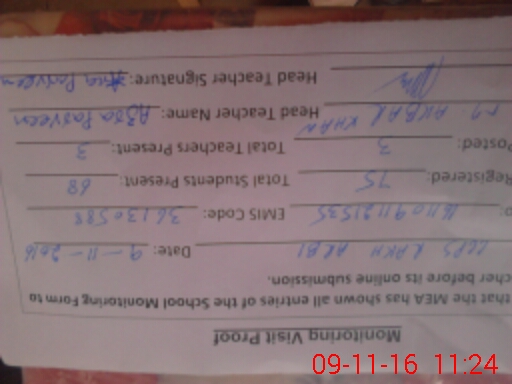 Monitoring Visit Proof
that the MEA has shown all entries of the School Monitoring Form to
cher before its online submission.
RAKH Date: 9-11-2016
EMIS Code: 36130588
Registered: 75 Total Students Present: 68
Posted: 3 Total Teachers Present: 3
AKBAR KHAN Head Teacher Name: Parveen
Head Teacher Signature: Parveen
09-11-16 11:24